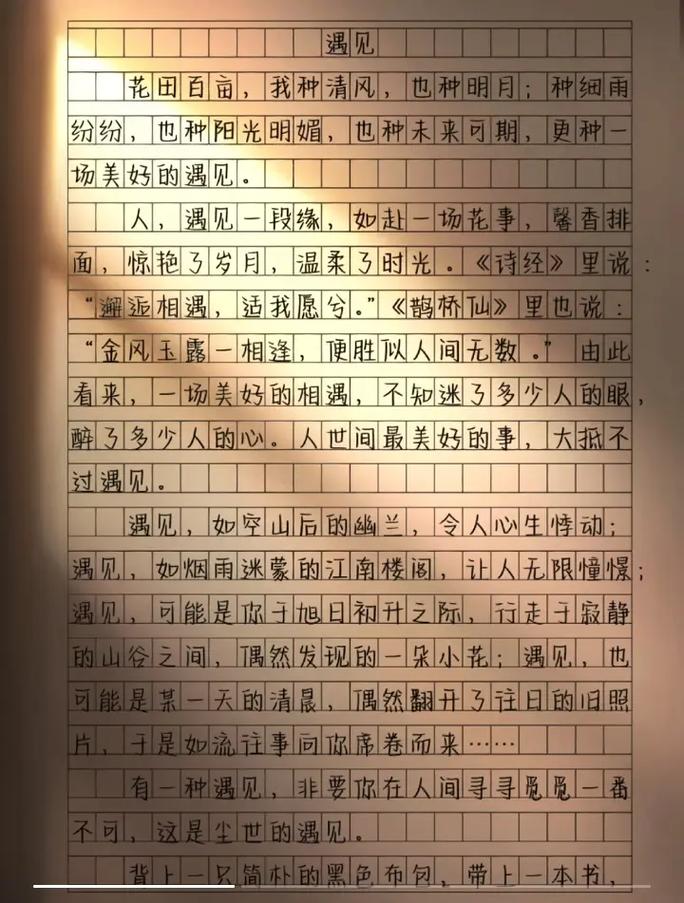 遇见
花田百亩，我种清风，也种明月；种细雨
纷纷，也种阳光明媚，也种未来可期，更种一
场美好的遇见。
人，遇见一段缘，如赴一场花事，馨香排
面，惊艳了岁月，温柔了时光。《诗经》里说：
“邂逅相遇，适我愿兮。”《鹊桥仙》里也说：
“金风玉露一相逢，便胜似人间无数。” 由此
看来，一场美好的相遇，不知迷了多少人的眼，
醉了多少人的心。人世间最美好的事，大抵不
过遇见。
遇见，如空山后的幽兰，令人心生悸动；
遇见，如烟雨迷蒙的江南楼阁，让人无限憧憬；
遇见，可能是你于旭日初升之际，行走于寂静
的山谷之间，偶然发现的一朵小花；遇见，也
可能是某一天的清晨，偶然翻开了往日的旧照
片，于是如流往事向你席卷而来……
有一种遇见，非要你在人间寻寻觅觅一番
不可，这是尘世的遇见。
背上一只简朴的黑色布包，带上一本书，